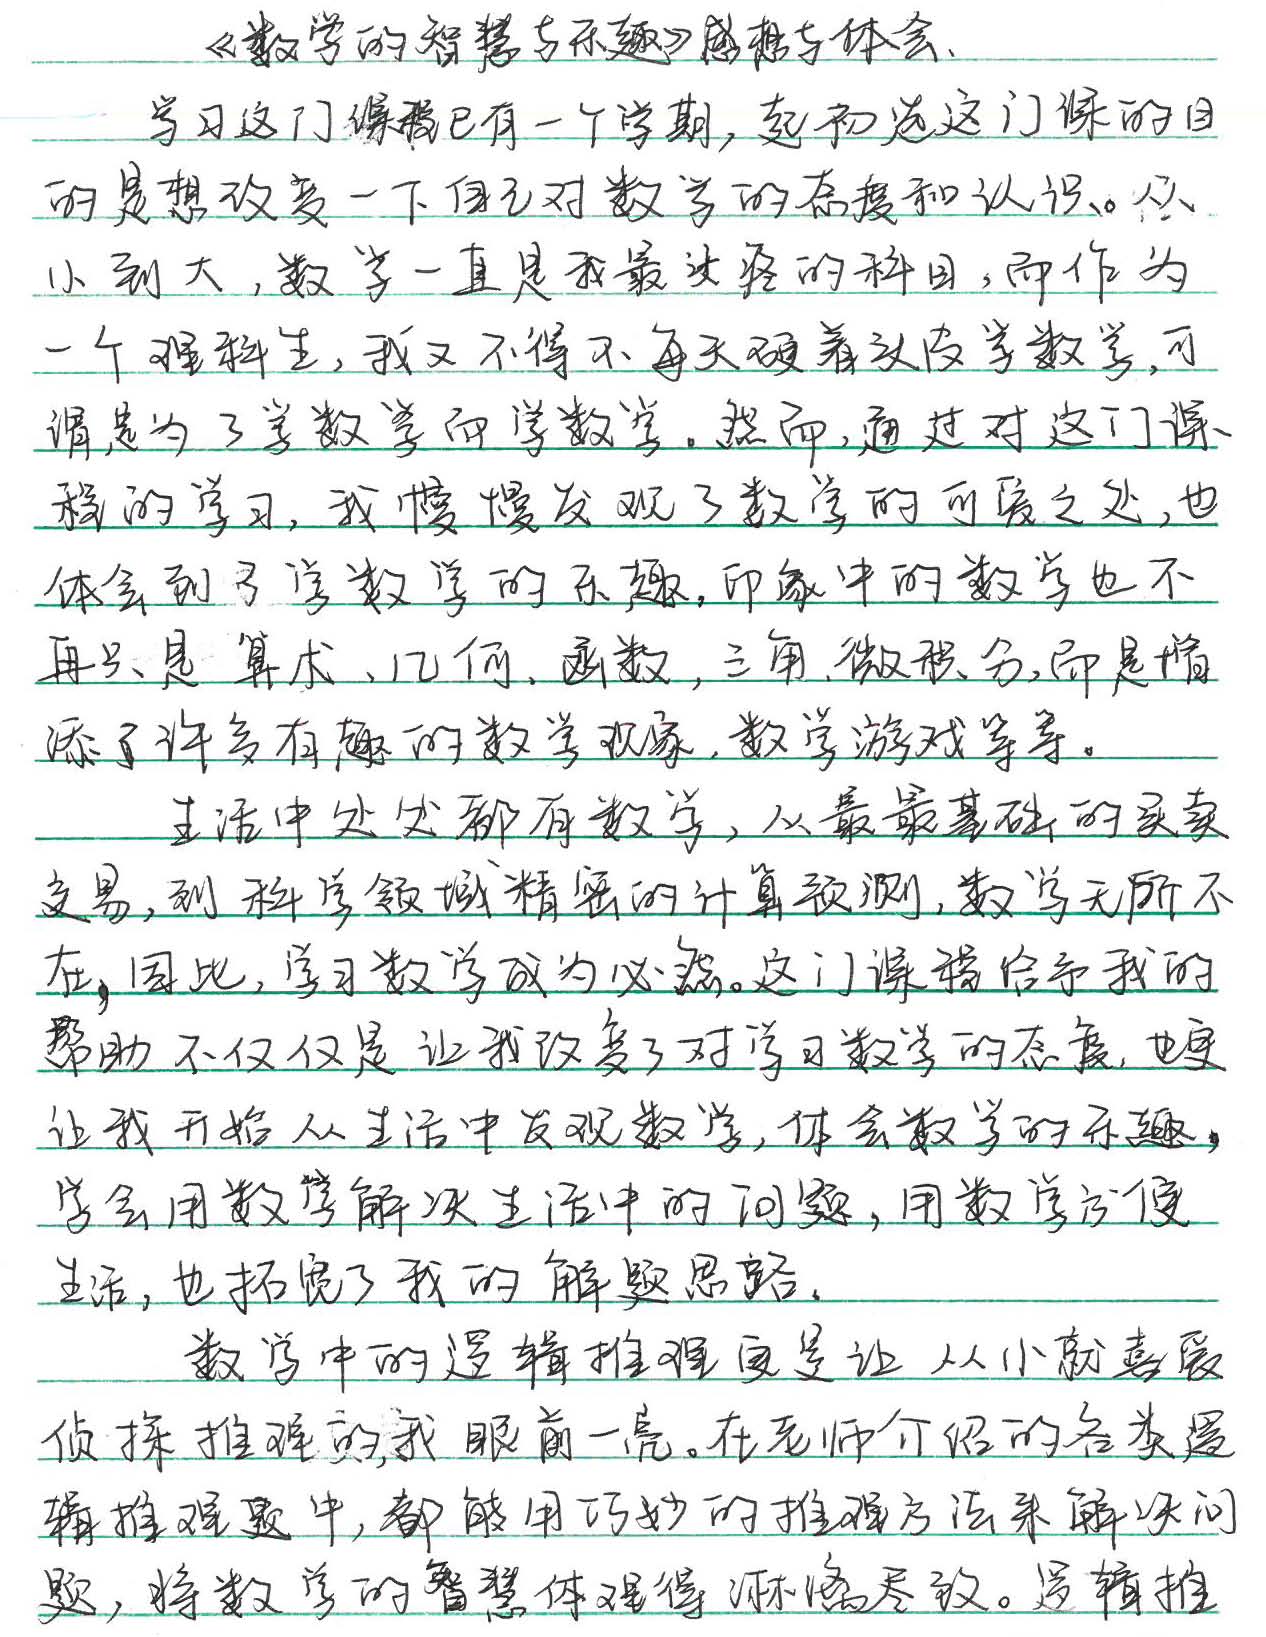 《数学的智慧与乐趣》感想与体会
学习这门课程已有一个学期，起初选这门课的目
的是想改变一下自己对数学的态度和认识。从
小到大，数学一直是我最头疼的科目，而作为
一个理科生，我又不得不每天硬着头皮学数学，可
谓是为了学数学而学数学。然而，通过对这门课
程的学习，我慢慢发现了数学的可爱之处，也
体会到了学数学的乐趣，印象中的数学也不
再只是算术、几何、函数，三角、微积分，而是增
添了许多有趣的数学现象，数学游戏等等。
生活中处处都有数学，从最最基础的买卖
交易，到科学领域精密的计算预测，数学无所不
在，因此，学习数学成为必然。这门课程给予我的
帮助不仅仅是让我改变了对学习数学的态度，也更
让我开始从生活中发现数学，体会数学的乐趣，
学会用数学解决生活中的问题，用数学方便
生活，也拓宽了我的解题思路。
数学中的逻辑推理更是让从小就喜爱
侦探推理的我眼前一亮。在老师介绍的各类逻
辑推理题中，都能用巧妙的推理方法来解决问
题，将数学的智慧体现得淋漓尽致。逻辑推